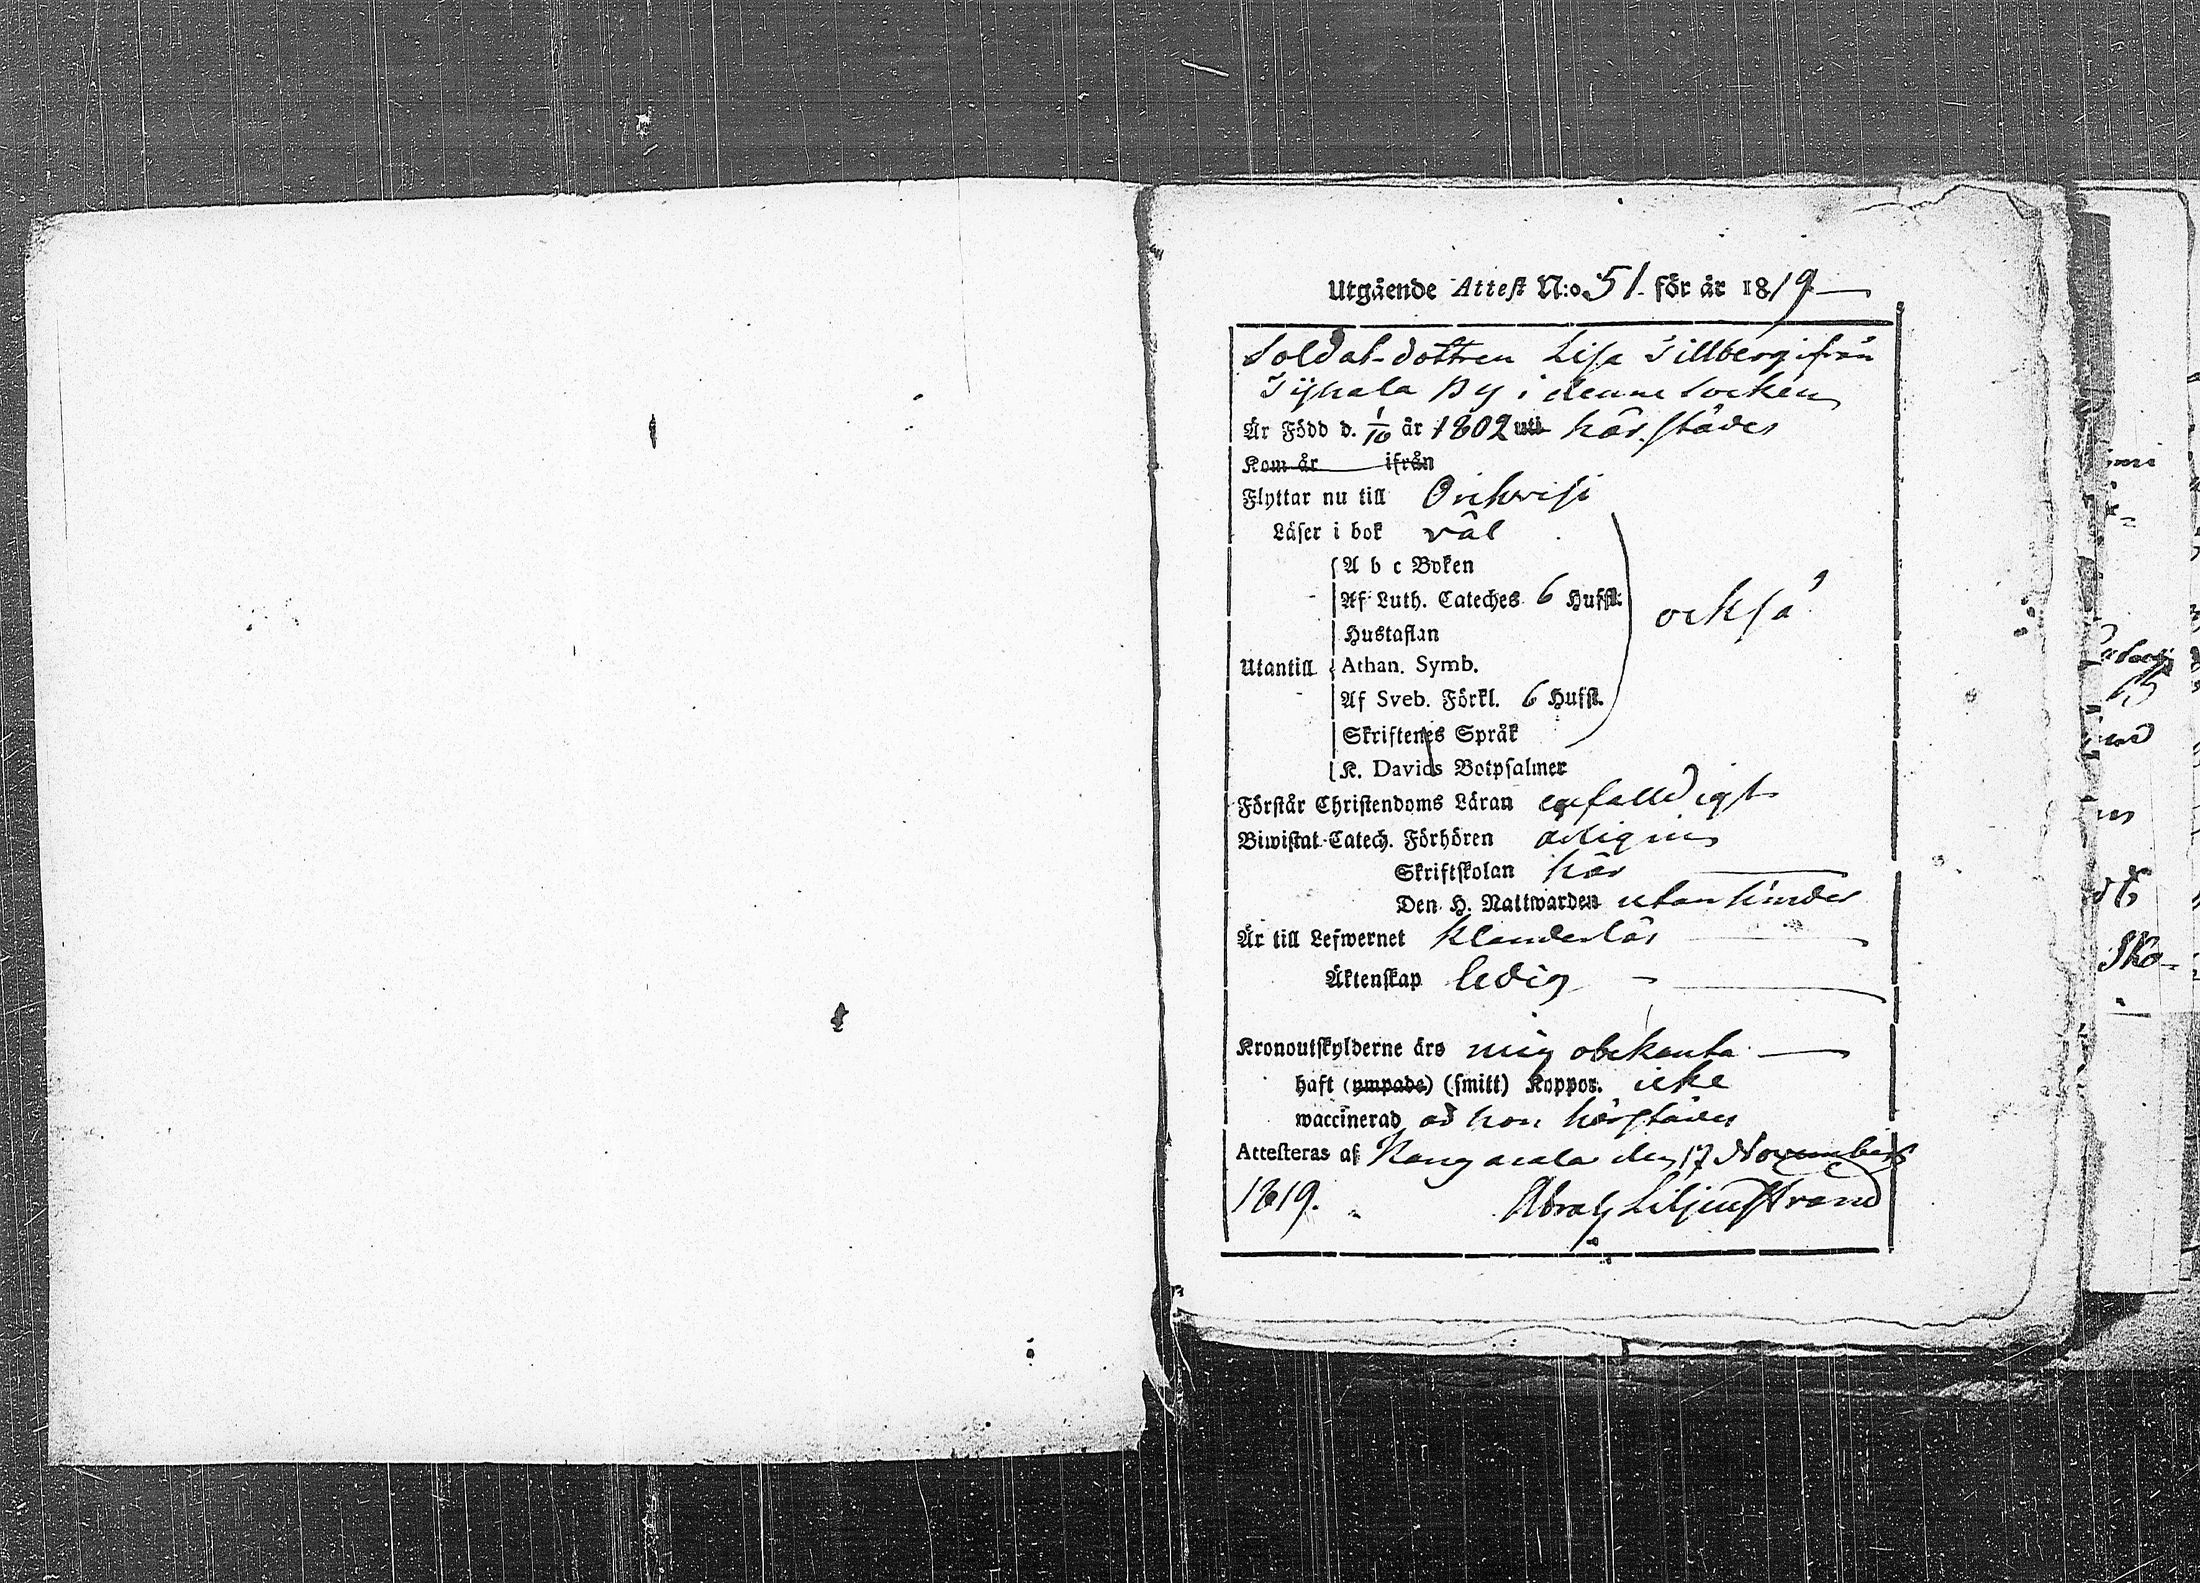 Utgående Attest N:o 51. för år 1819
Soldat-dottren Lisa Tillberg ifrån
By i denne Socken
Är Född d. 1/10 år 1802 uti härstädes
Kom år ifrån
Flyttar nu till Orihvesi
Läser i bok väl
A b c Boken
Af Luth. Cateches 6 Hufst.
också
Hustaflan
Utantill Athan. Symb.
Af Sveb. Förkl. 6 Hufst.
Skriftenes Språk
K. Davids Botpsalmer
Förstår Christendoms Läran enfalldigt
Biwistat Catech. Förhören
Skriftskolan här
Den H. Nattwarden utan hinder
Är till Lefwernet klanderlös
Äktenskap ledig
Kronoutskylderne äro mig obekanta
haft (ympade) (smitt) Koppor. icke
waccinerad är hon härstädes
Attesteras af Kangasala den 17 Novembris
1819. Abrah Liljenstrand